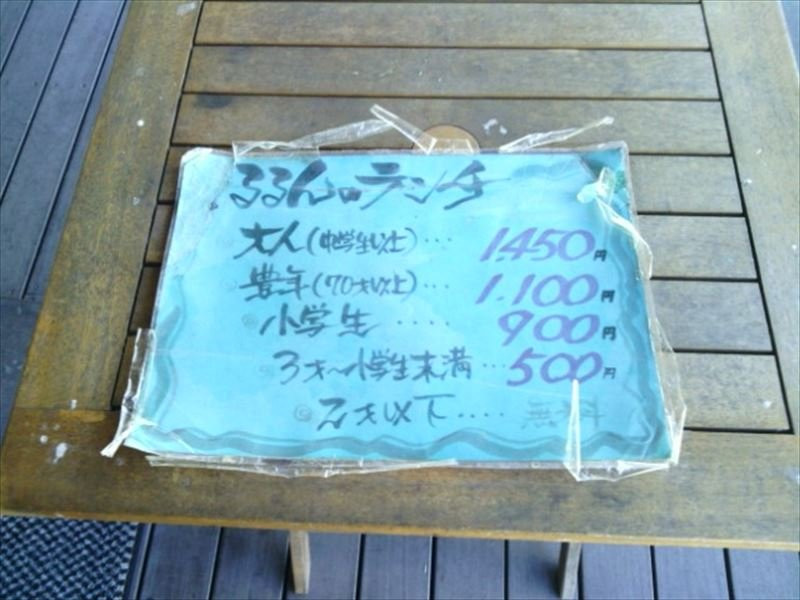 るるんのランチ
大人(中学生以上)…. 1,450円
豊年(70才以上)… 1,100円
小学生 .... 900円
3才〜小学生未満… 500円
2才以下.... 無料